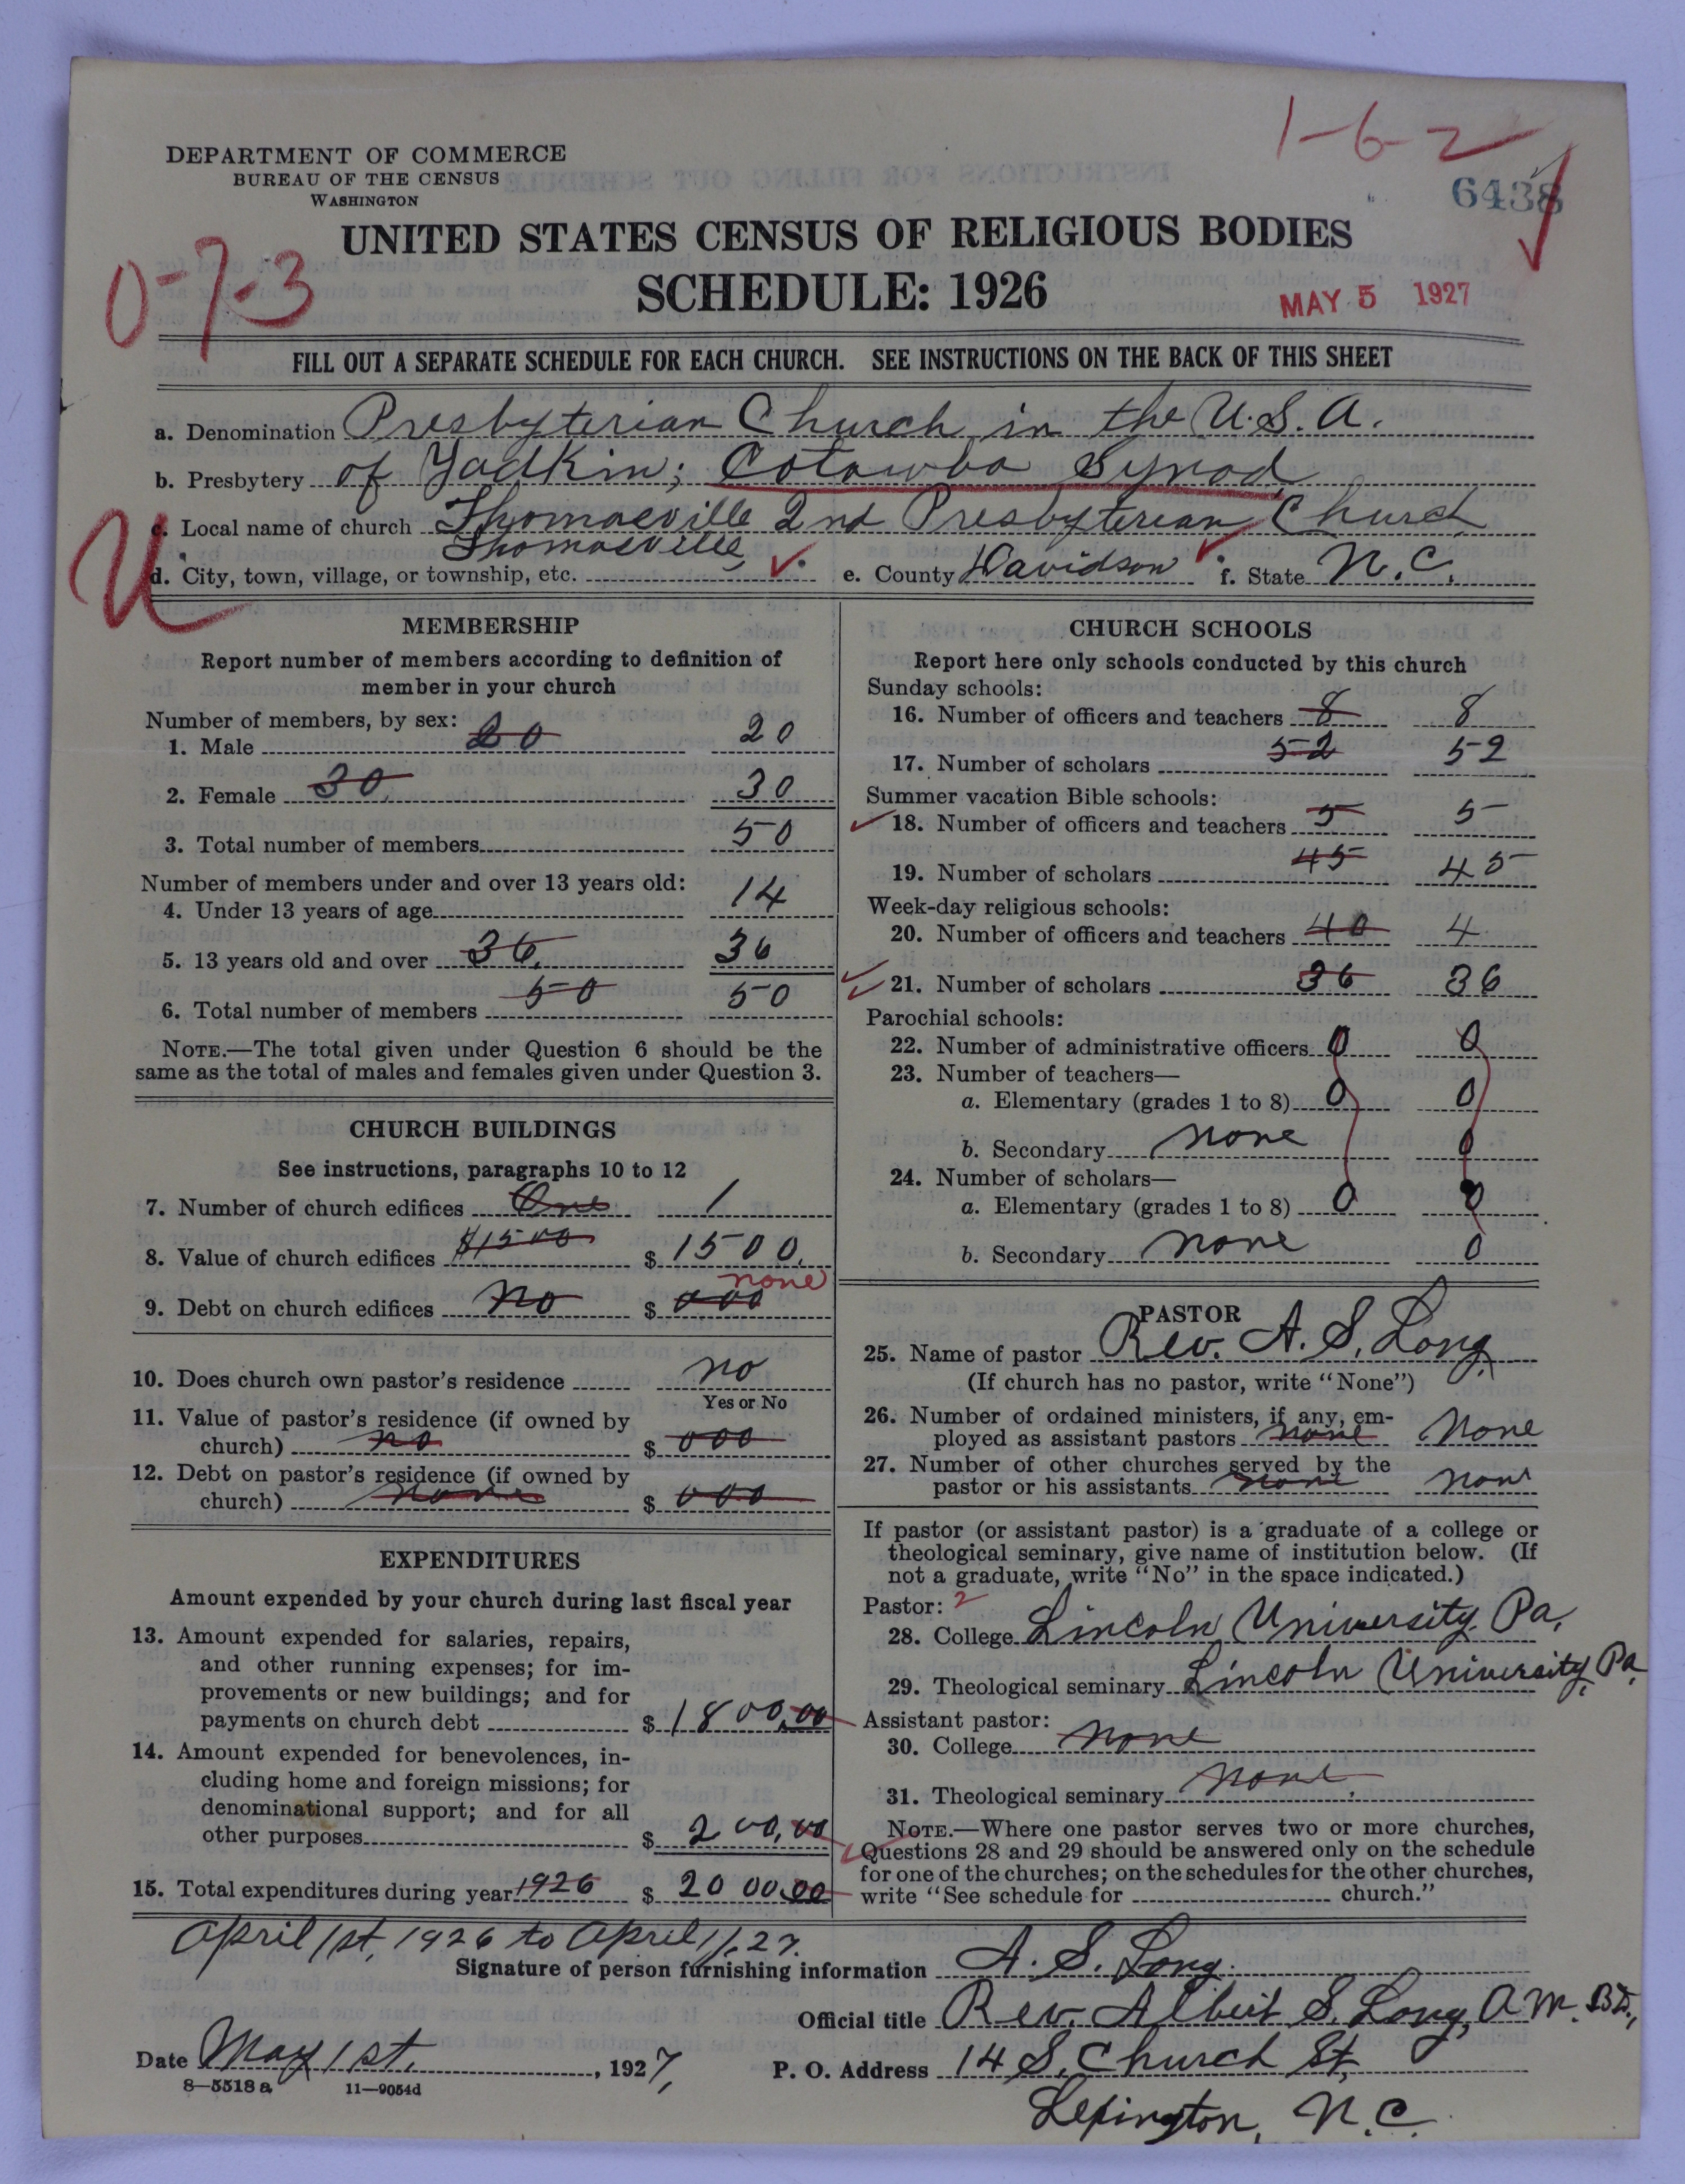 1-6-2
DEPARTMENT OF COMMERCE
BUREAU OF THE CENSUS
WASHINGTON
6438
UNITED STATES CENSUS OF RELIGIOUS BODIES
SCHEDULE: 1926
0-7-3
MAY 5 1927
FILL OUT A SEPARATE SCHEDULE FOR EACH CHURCH. SEE INSTRUCTIONS ON THE BACK OF THIS SHEET
a. Denomination Presbyterian Church in the U.S.A.
b. Presbytery of Yadkin; Cotawba Synod
c. Local name of church Thomasville 2nd Presbyterian Church
U
d. City, town, village, or township, etc. Thomasville, e. County Davidson f. State N.C.
MEMBERSHIP
Report number of members according to definition of
member in your church
Number of members, by sex:
1. Male 20 20
2. Female 30 30
3. Total number of members 50
Number of members under and over 13 years old:
4. Under 13 years of age 14
5. 13 years old and over 36 36
6. Total number of members 50 50
NOTE.—The total given under Question 6 should be the
same as the total of males and females given under Question 3.
CHURCH BUILDINGS
See instructions, paragraphs 10 to 12
7. Number of church edifices One 1
8. Value of church edifices $1500 $ 1500.
none
9. Debt on church edifices No $ 000
10. Does church own pastor's residence no
Yes or No
11. Value of pastor's residence (if owned by
church) no $ 000
12. Debt on pastor's residence (if owned by
church) none $ 000
EXPENDITURES
Amount expended by your church during last fiscal year
13. Amount expended for salaries, repairs,
and other running expenses; for im-
provements or new buildings; and for
payments on church debt $ 1800.00
14. Amount expended for benevolences, in-
cluding home and foreign missions; for
denominational support; and for all
other purposes $ 200.00
15. Total expenditures during year 1926 $ 2000.00
CHURCH SCHOOLS
Report here only schools conducted by this church
Sunday schools:
16. Number of officers and teachers 8 8
17. Number of scholars 52 52
Summer vacation Bible schools:
18. Number of officers and teachers 5 5
19. Number of scholars 45 45
Week-day religious schools:
20. Number of officers and teachers 40 4
21. Number of scholars 36 36
Parochial schools:
22. Number of administrative officers 0 0
23. Number of teachers—
a. Elementary (grades 1 to 8) 0 0
b. Secondary none 0
24. Number of scholars—
a. Elementary (grades 1 to 8) 0 0
b. Secondary none 0
PASTOR
25. Name of pastor Rev. A. S. Long
(If church has no pastor, write "None")
26. Number of ordained ministers, if any, em-
ployed as assistant pastors none None
27. Number of other churches served by the
pastor or his assistants none none
If pastor (or assistant pastor) is a graduate of a college or
theological seminary, give name of institution below. (If
not a graduate, write "No" in the space indicated.)
Pastor: 2
28. College Lincoln University, Pa.
29. Theological seminary Lincoln University, Pa
Assistant pastor:
30. College none
31. Theological seminary none
NOTE.—Where one pastor serves two or more churches,
Questions 28 and 29 should be answered only on the schedule
for one of the churches; on the schedules for the other churches,
write "See schedule for church."
April 1st, 1926 to April 1, 27.
Signature of person furnishing information A. S. Long.
Official title Rev. Albert S. Long, A.M. B.D.,
Date May 1st. , 1927,
P. O. Address 14 S. Church St,
8—5518 a 11—9054d
Lexington, N.C.